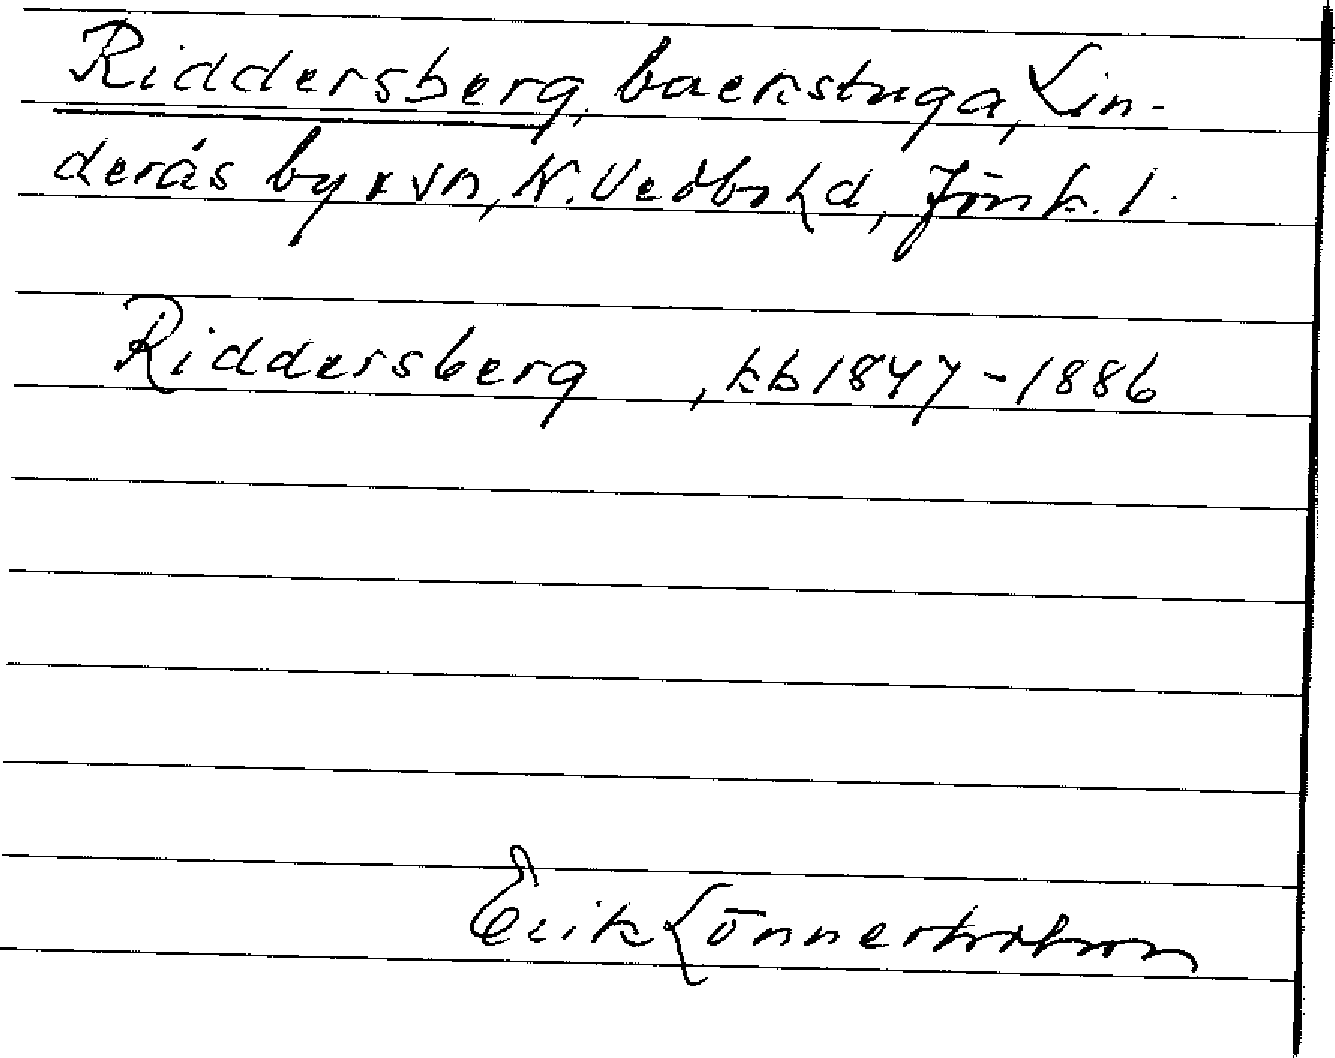 Riddersberg, backstuga, Lin-
derås by x sn, N. Vedbo hd, Jönk. l.
Riddersberg , kb 1847-1886
Erik Lönnerholm